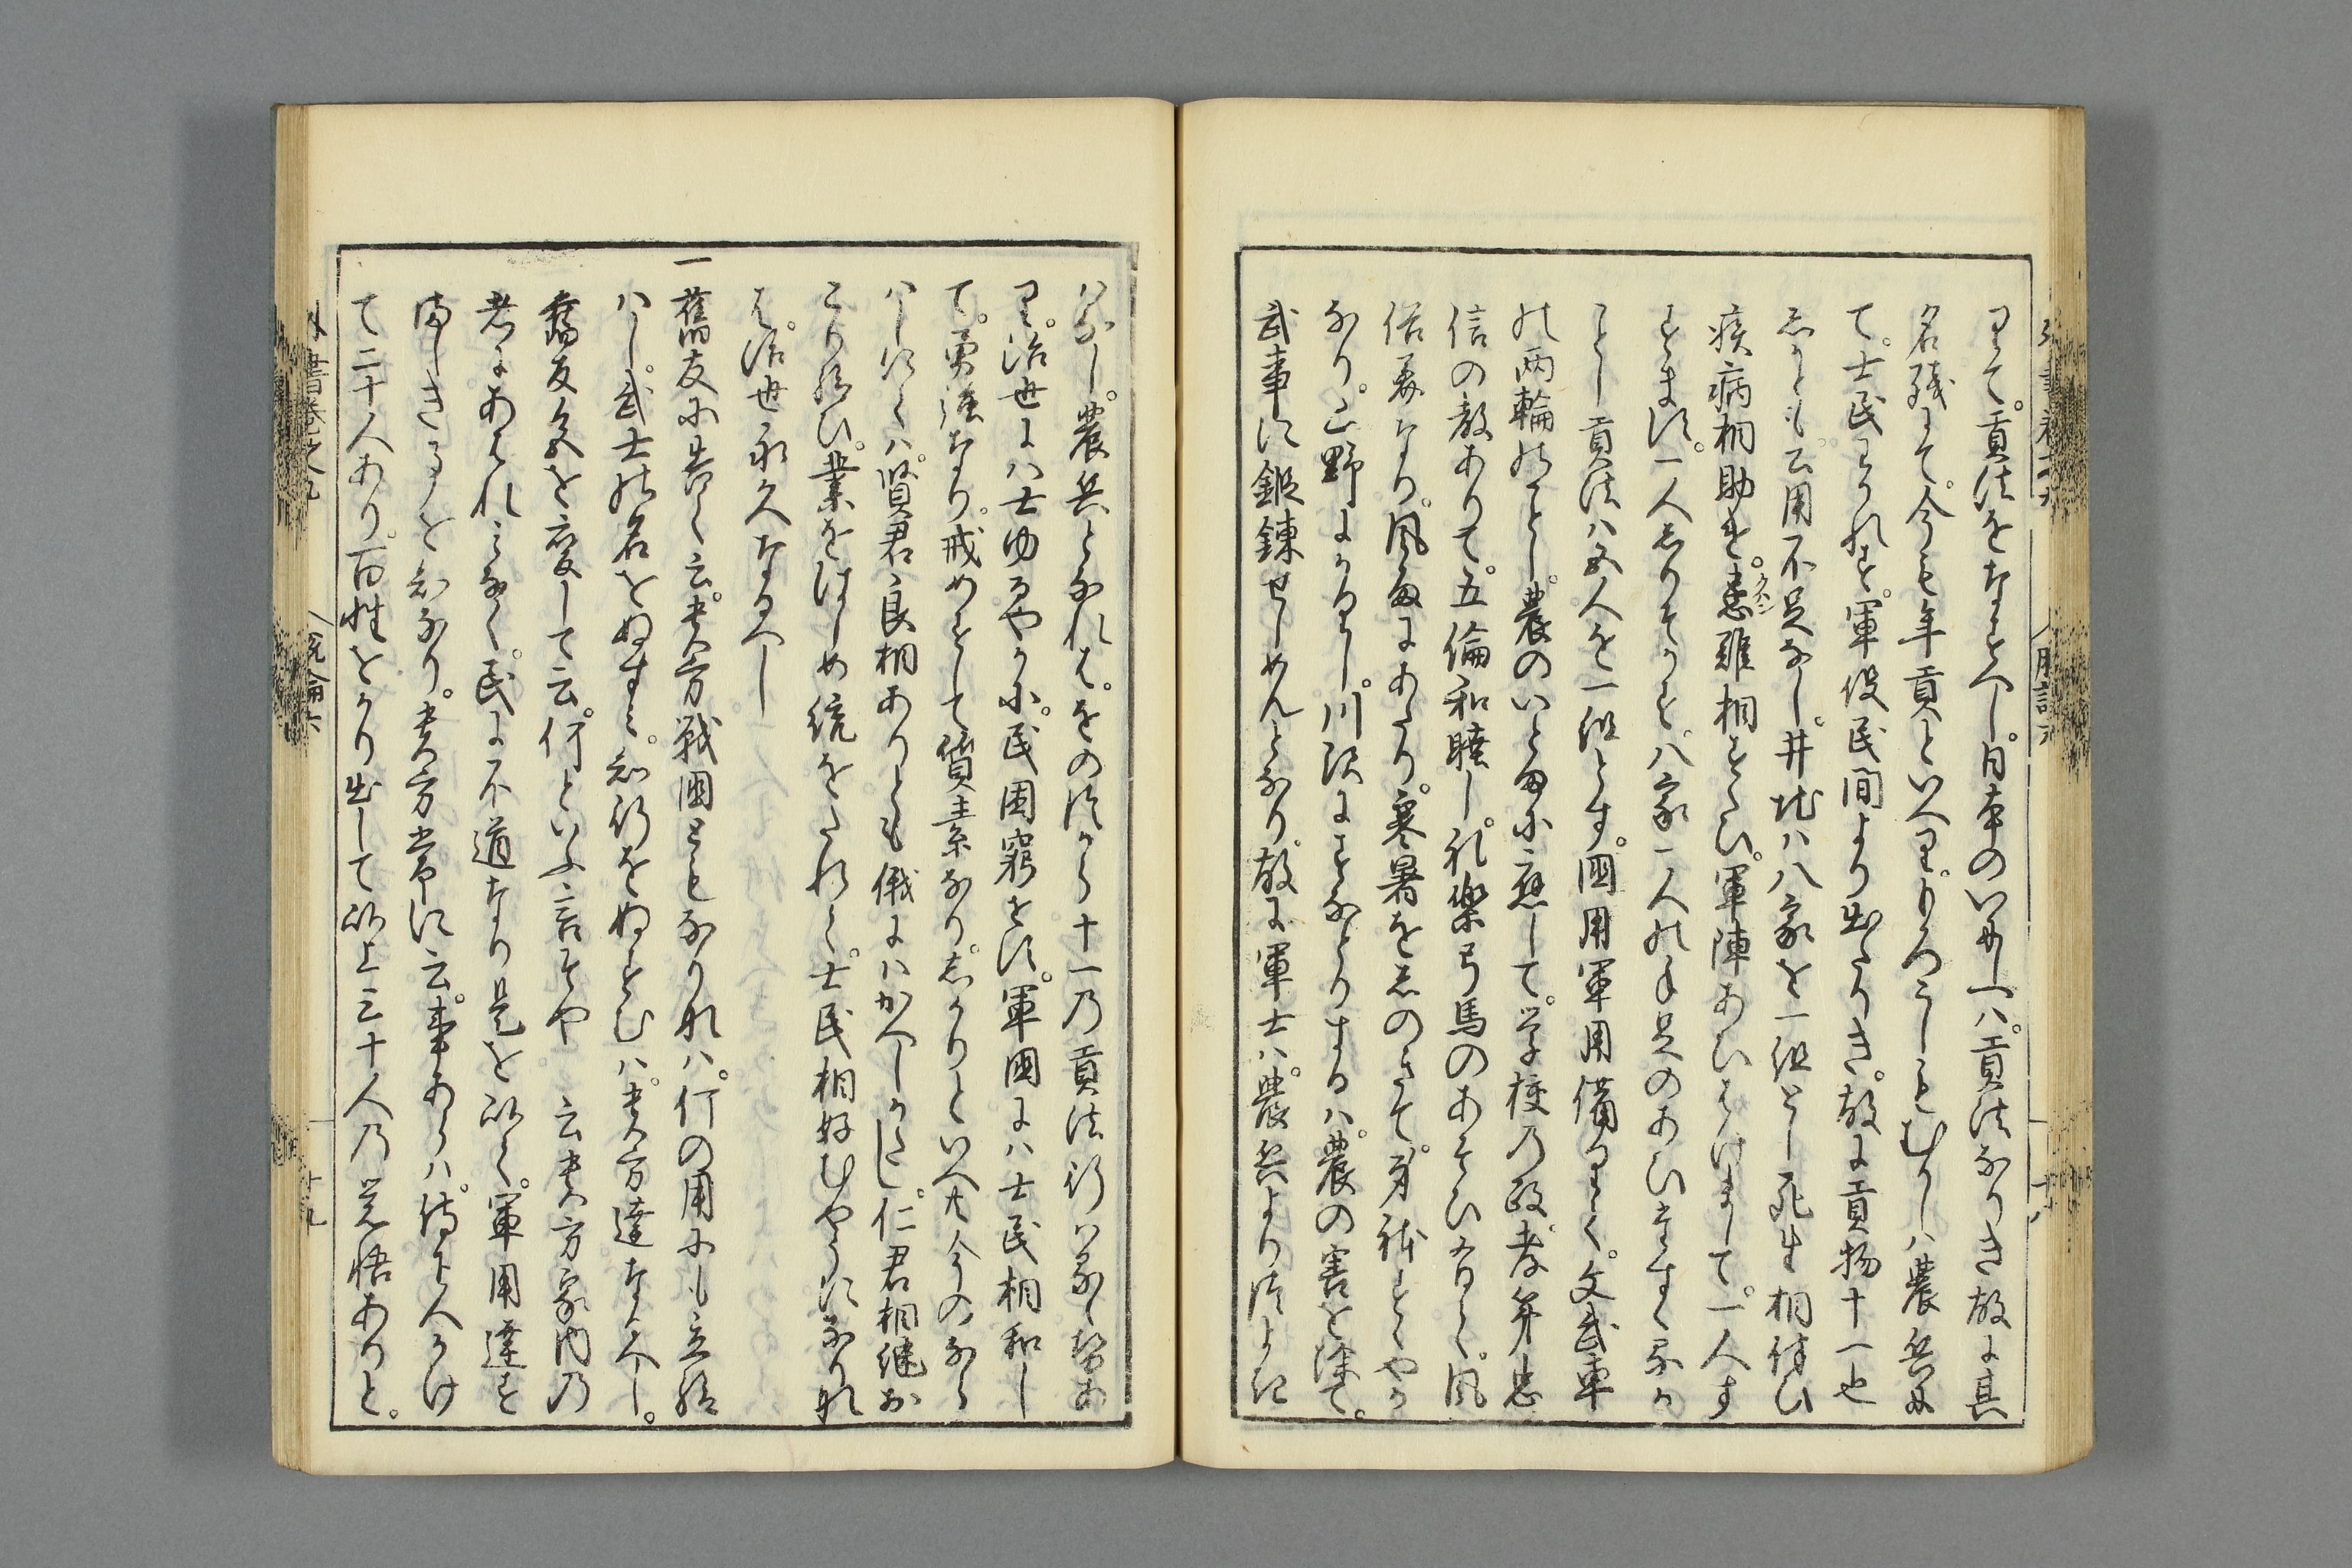 て。貢法をなすへし。日本のいにしへハ。貢法なりき故に其
名残にて。今も年貢といへり。むかしハ農兵に
て。士民わかれす。軍役民間より出たりき。故に貢物十一也
しかとも。公用不足なし。井地ハ八家を一組とし死生相侍ひ
疾病相助け。患難相すくひ。軍陣あひはけまして。一人す
すます。一人しりそかす。八家一人の手足のあひすすくふか
ことし貢法ハ五人を一組とす。國用軍用備りて。文武車
の両輪のことし。農のいとまに應して。学校の政。孝弟忠
信の教ありて。五倫和睦し。礼楽弓馬のあそひありて。風
俗美なり。風雨にあたり。寒暑をしのきて。身体すくやか
なり。山野にかりし。川沢にすなとりするハ。農の害を除て。
武事に鍛錬せしめんとなり。故に軍士ハ。農兵よりつよき
ハなし。農兵となれは。をのつから十一の貢法行ハるゝ勢あ
り。治世にハ士ゆるやかに。民困窮せす。軍國にハ士民相和し
て。勇強なり。戒めすして質素なり。しかりといへ共今のなら
ハしにてハ。賢君良相ありとも俄にハかへしかたし。仁君相継お
こり給ひ。業をはしめ統をたれて。士民相好むやうになりな
は。治世永久なるへし
一舊友に告て云。貴方戦國ともなりなハ。何の用にも立給
ハし。武士の名をぬすみ。知行をぬすむハ。貴方達なるへし。
舊友気を変して云。何といふ言そや 云貴方家内の
者にあはれみなく。民に不道なり是を以て。軍用達す
ましきことを知なり。貴方常に云。事あらハ。侍下人かけ
て二十人あり。百姓をかり出して以上三十人の覚悟ありと。